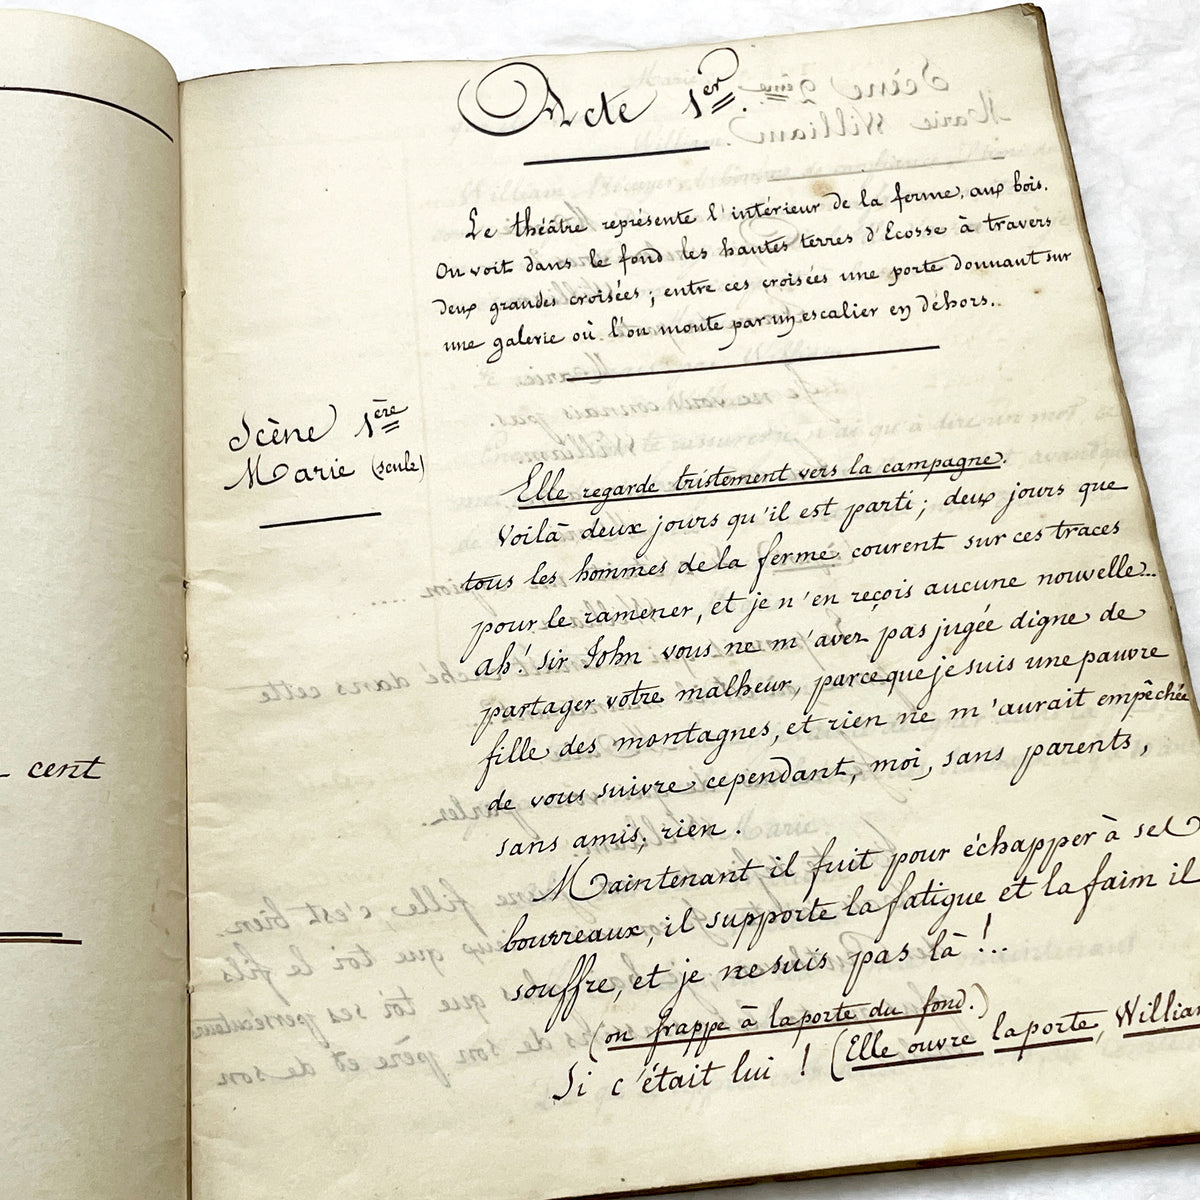 cent
Acte 1er.
Le théâtre représente l'intérieur de la ferme, aux bois.
On voit dans le fond les hautes terres d'Ecosse à travers
deux grandes croisées ; entre ces croisées une porte donnant sur
une galerie où l'on monte par un escalier en déhors..
Scène 1ère
Marie (seule)
Elle regarde tristement vers la campagne.
Voilà deux jours qu'il est parti ; deux jours que
tous les hommes de la ferme courent sur ces traces
pour le ramener, et je n'en reçois aucune nouvelle...
ah! sir John vous ne m'avez pas jugée digne de
partager votre malheur, parceque je suis une pauvre
fille des montagnes, et rien ne m'aurait empêchée
de vous suivre cependant, moi, sans parents,
sans amis, rien.
Maintenant il fuit pour échapper à ses
bourreaux, il supporte la fatigue et la faim il
souffre, et je ne suis pas là !..
(on frappe à la porte du fond.)
Si c'était lui ! (Elle ouvre la porte, William